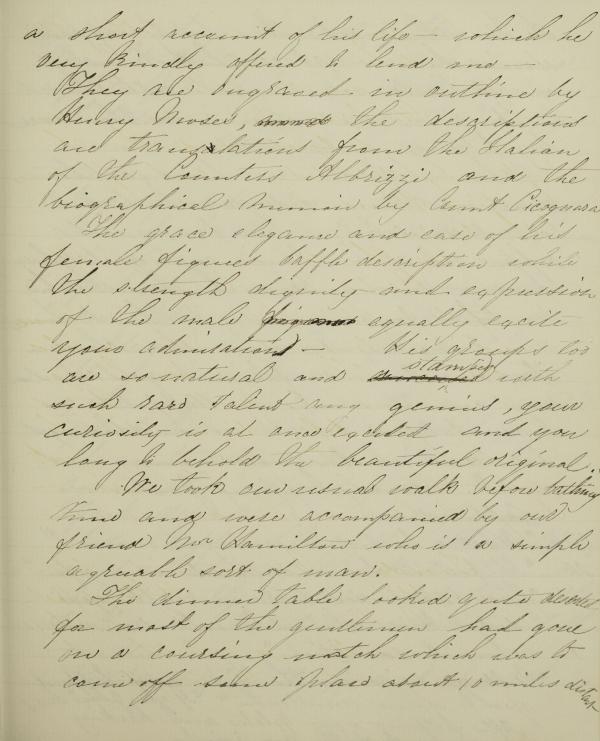 a short account of his life - which he
very kindly offered to lend me -
They are engraved in outline by
Henry Moses, the descriptions
are translations from the Italian
of the Countess Albrizzi and the
biographical memoir by Count Cicognara
The grace elegance and ease of his
female figures baffle description while
the strength dignity and expression
of the male figures equally excite
your admiration - His groups too
are so natural and stamped with
such rare talent and genius, your
curiosity is at once excited and you
long to behold the beautiful original.
We took our usual walk before bathing
time and were accompanied by our
friend Mr Hamilton who is a simple
agreeable sort of man.
The dinner table looked quite deserted
for most of the gentlemen had gone
on a coursing match which was to
come off some place about 10 miles distant